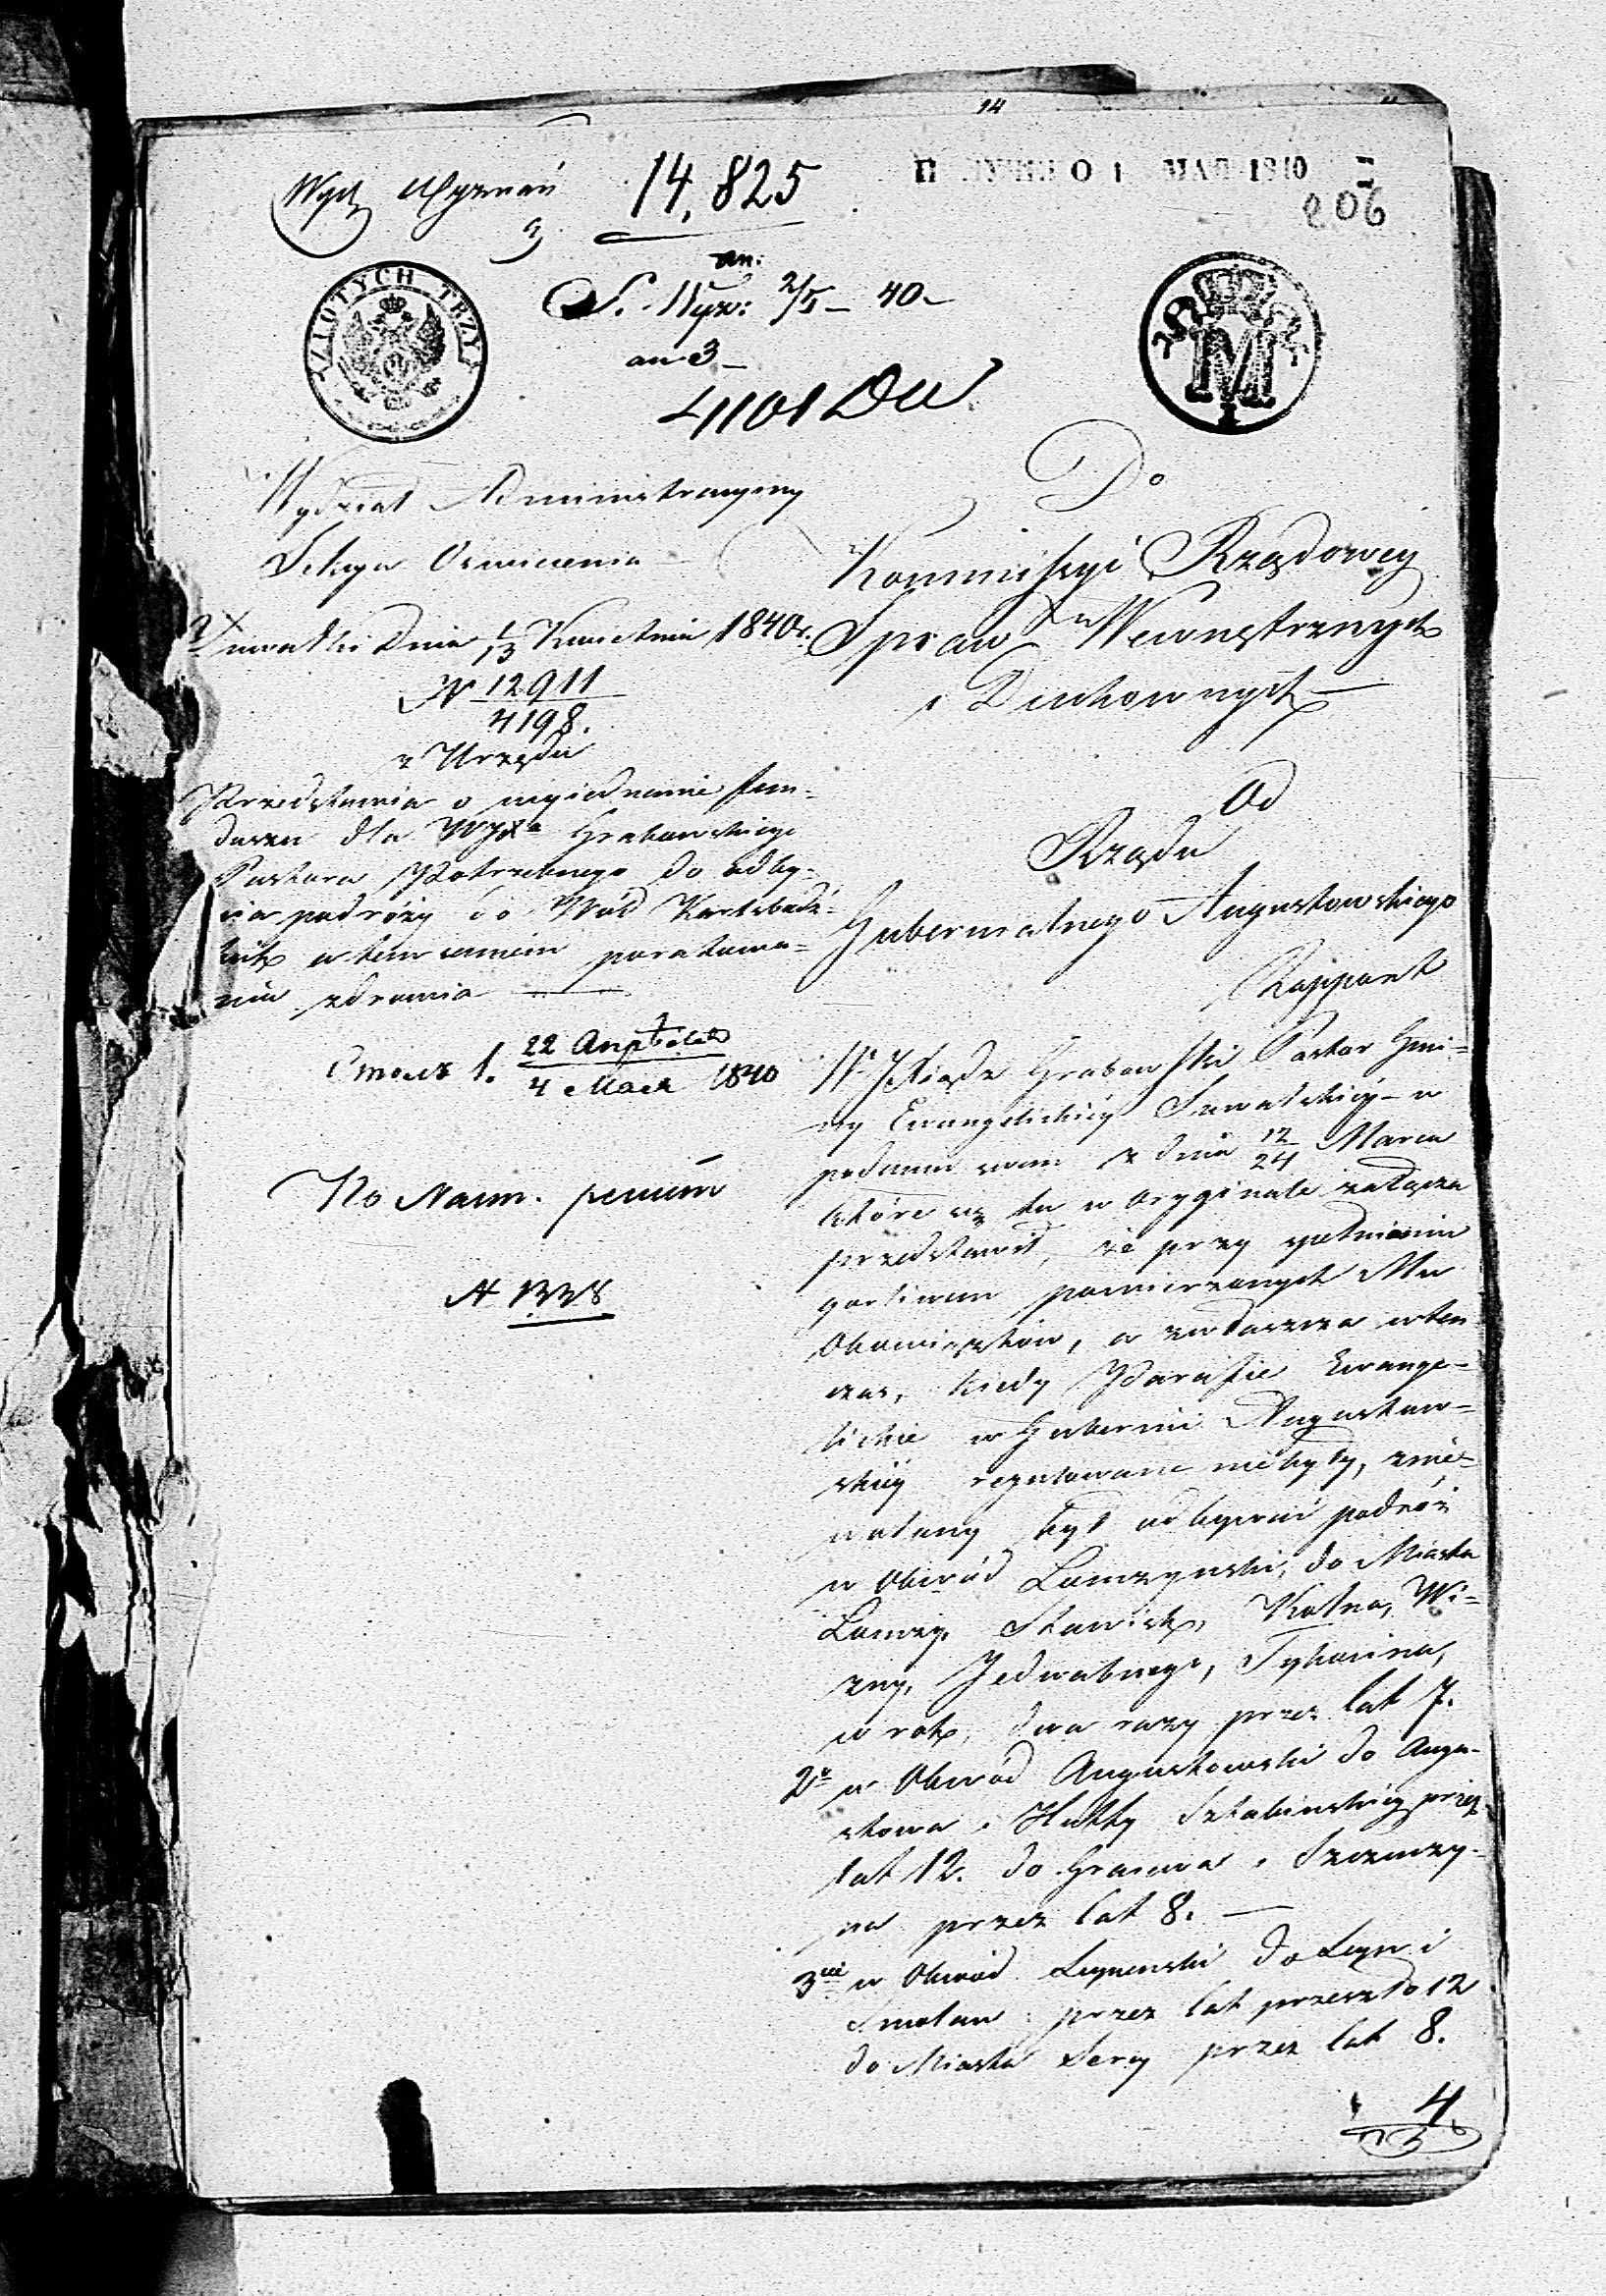 14
Wyd. Wyznań
14,825
206
an:
S. Wyz: 2/5 – 40 –
an 3 –
4101 DW
ZŁOTYCH TRZY
M
Wydział Administracyjny
Sekcya Oświecenia
Suwałki Dnia 1/13 Kwietnia 1840 r.
N 12911
4198.
z Urzędu
Przedstawia o wyjednanie fun-
duszu dla WJXa Grabowskiego
Pastora Potrzebnego do odby-
cia podróży do Wód Karlsbadz-
kich w tem celem poratowa-
nia zdrowia
22 Апрѣля
4 Мая 1840
Ko Naum.
Do
Kommissyi Rządowey
Spraw Wewnętrznych
i Duchownych
Od
Rządu
Gubernialnego Augustowskiego
Rapport
W JXiądz Grabowski Pastor Gmi-
ny Ewangelickiéy Suwalskiéy – w
podaniu swem z dnia 12/24 Marca
które się tu w Oryginale załącza
przedstawił, że przy spełnianiu
gorliwem powierzonych Mu
Obowiązków, a zwłaszcza wten
czas, kiedy Parafie Ewange-
lickie w Gubernii Augustow-
skiéy regulowane niebyły, znie-
wolony był odbywać podróż
w Obwód Łomzynski, do Miasta
Łomzy, Stawisk, Kolna, Wi-
zny, Jedwabnego, Tykocina,
w rok, dwa razy przez lat 7.
2o w Obwód Augustowski do Augu-
stowa i Hutty Sztabinskiéy przez
lat 12. do Graiewa i Szczuczy-
na przez lat 8. —
3cie w Obwód Seynenski do Seyn i
Smolan przez lat przeszło 12
do Miasta Serey przez lat 8.
4